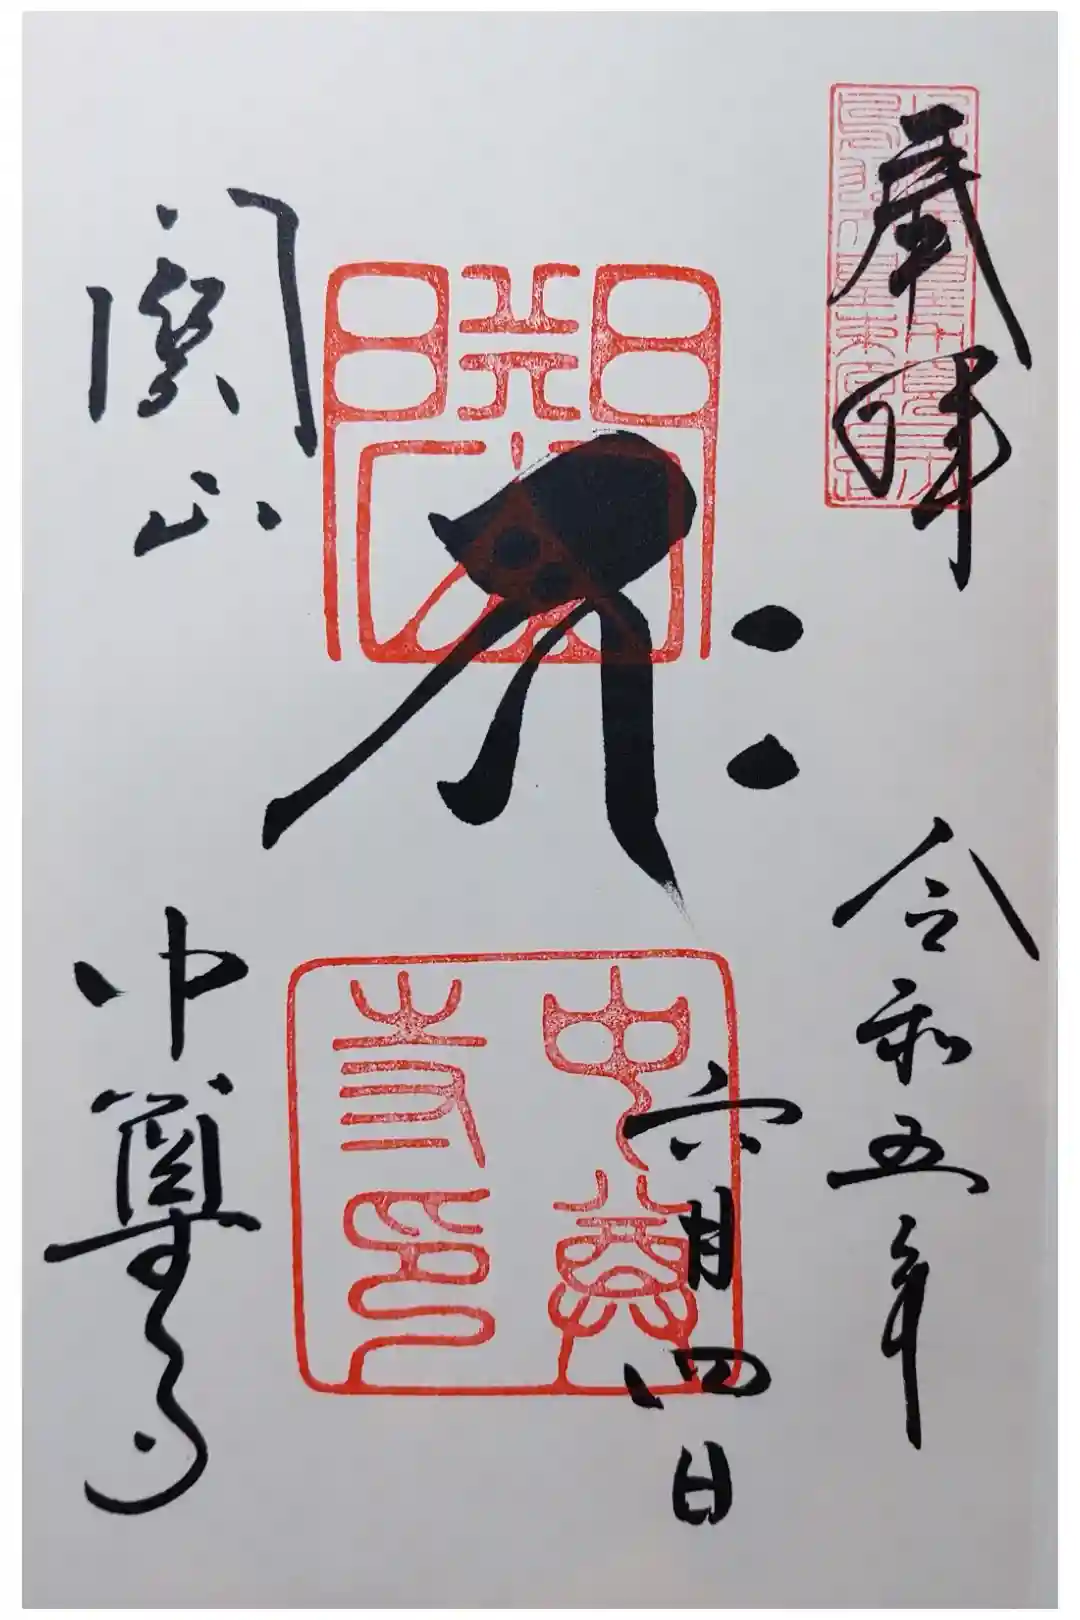 奉拝
令和五年
六月四日
中尊寺印
関山
中尊寺